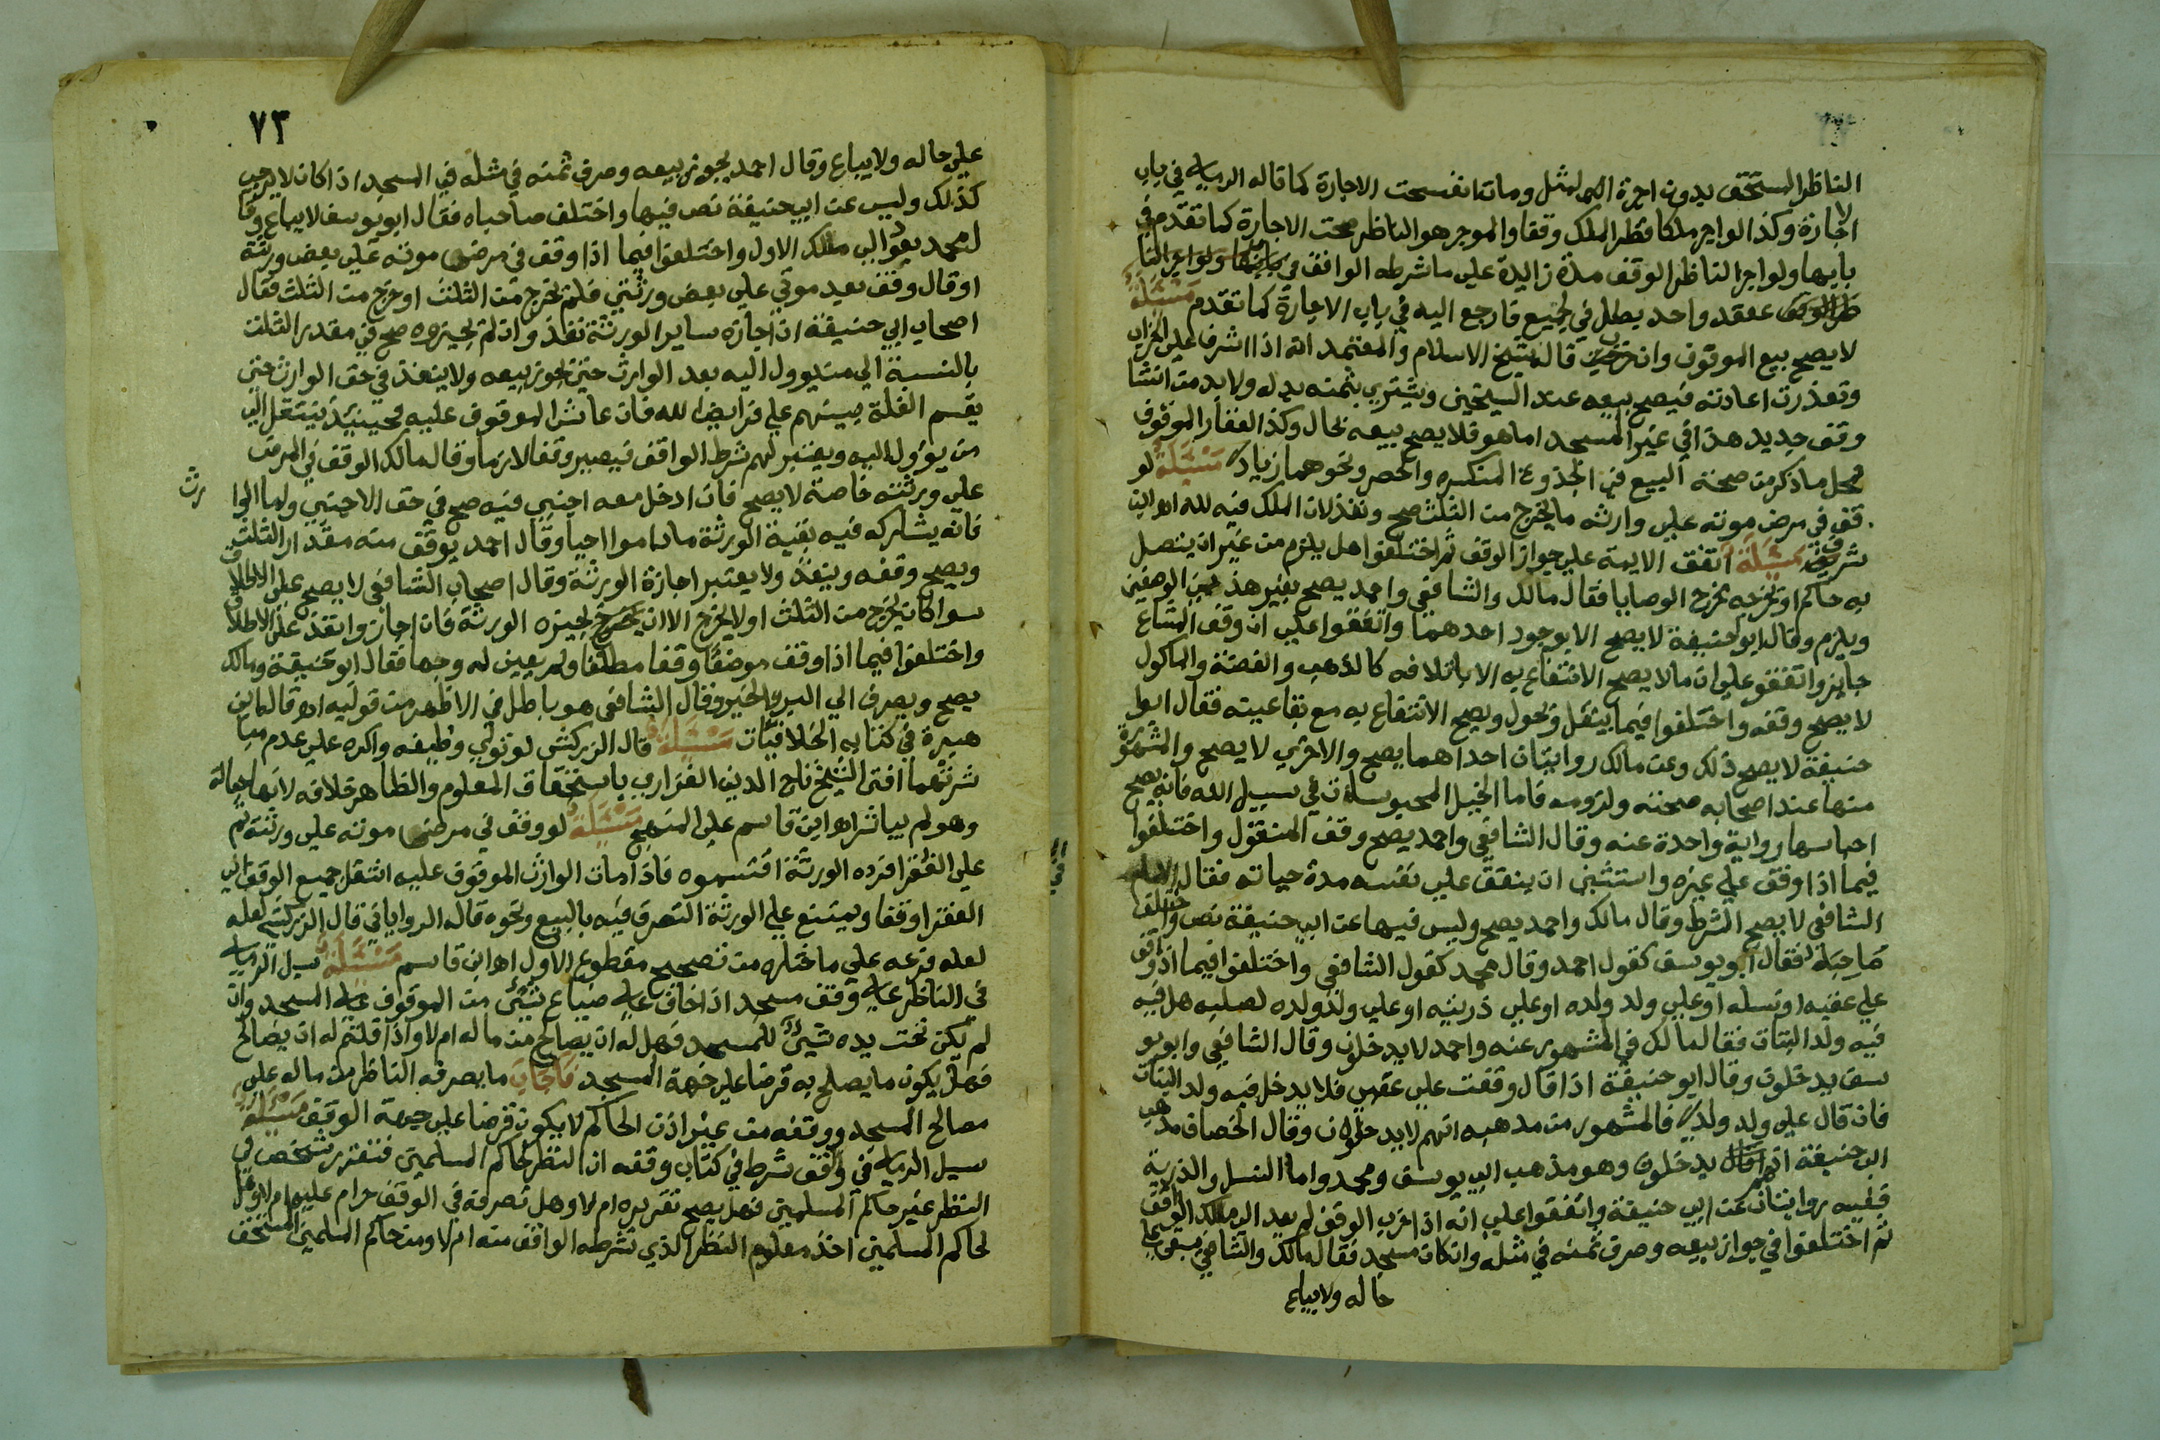 الناظر المستحق بدون اجرة المثل ومات انفسخت الاجارة كما قاله الرملي في باب
الاجارة وكذا لو اجر ملكا فطر الملك وقفا والموجر هو الناظر صحت الاجارة كما تقدم في
بابها ولو اجر الناظر الوقف مدة زايدة على ما شرطه الواقف في
عقد واحد بطل في الجميع فارجع اليه في باب الاجارة كما تقدم مسئلة
لا يصح بيع الموقوف وان خرب قال شيخ الاسلام والمعتمد انه اذا اشرف على الخراب
وتعذرت اعادته فيصح بيعه عند الشيخين ويشتري بثمنه بدله ولا بد من انشا
وقف جديد هذا في غير المسجد اما هو فلا يصح بيعه بحال وكذا العقار الموقوف
محل ما ذكر من صحة البيع في الجذوع المنكسره والحصر ونحوهما زيادي مسئلة لو
وقف في مرض موته على وارثه ما يخرج من الثلث صح ونفذ لان الملك فيه لله اه
مسئلة اتفق الايمة على جواز الوقف ثم اختلفوا هل يلزم من غير ان يتصل
به حاكم او يخرجه مخرج الوصايا فقال مالك والشافعي واحمد يصح بغير هذين الوصفين
ويلزم وقال ابو حنيفة لا يصح الا بوجود احدهما واتفقوا على ان وقف المشاع
جايز واتفقو على ان ما لا يصح الانتفاع به الا باتلافه كالذهب والفضة والماكول
لا يصح وقفه واختلفوا فيما ينقل ويحول ويصح الانتفاع به مع بقا عينه فقال ابو
حنيفة لا يصح ذلك وعن مالك روايتان احداهما يصح والاخري لا يصح والمشهور
منها عند اصحابه صحته ولزومه فاما الخيل المحبوسات في سبيل الله فانه يصح
احباسها رواية واحدة عنه وقال الشافعي واحمد يصح وقف المنقول واختلفوا
فيما اذا وقف على غيره واستثني ان ينفق على نفسه مدة حياته فقال الامام
الشافعي لا يصح الشرط وقال مالك واحمد يصح وليس فيها عن ابي حنيفة نص واختلفا
صاحباه فقال ابو يوسف كقول احمد وقال محمد كقول الشافعي واختلفوا فيما اذا وقف
على عقبه او نسله او على ولد ولده او على ذريته او على ولد ولده لصلبه هل
فيه ولد البنات فقال مالك في المشهور عنه واحمد لا يدخلون وقال الشافعي وابو يو
سف يدخلون وقال ابو حنيفة اذا قال وقفت على عقبي فلا يدخل فيه ولد البنات
فان قال على ولد ولدي فالمشهور من مذهبه انهم لا يدخلون وقال الخصاف مذهب
ابي حنيفة انهم يدخلون وهو مذهب ابي يوسف ومحمد واما النسل والذرية
ففيه روايتان عن ابي حنيفة واتفقوا على انه اذا خرب الوقف لم يعد الى ملك الواقف
ثم اختلفوا في جواز بيعه وصرف ثمنه في مثله وان كان مسجد فقال مالك والشافعي يبقى على
حاله ولا يباع
٧٣
على حاله ولا يباع وقال احمد يجوز بيعه وصرف ثمنه في مثله في المسجد اذا كان لا يرجي
كذلك وليس عن ابي حنيفة نص فيها واختلف صاحباه فقال ابو يوسف لا يباع وقا
ل محمد يعود الى ملك الاول واختلفوا فيما اذا وقف في مرض موته على بعض ورثته
او قال وقف بعد موتي على بعض ورثتي فلم يخرج من الثلث او خرج من الثلث فقال
اصحاب ابي حنيفة ان اجازه ساير الورثة نفذ وان لم يجيزوه صح في مقدر الثلث
بالنسبة الى من يوول اليه بعد الوارث حتى يجوز بيعه ولا ينفذ في حق الوارث حتى
يقسم الغلة بينهم على فرايض الله فان عاش الموقوف عليه فحينيذ ينتقل الى
من يوول اليه ويعتبر لهم شرط الواقف فيصير وقفا لازما وقال مالك الوقف في المرض
على ورثته خاصة لا يصح فان ادخل معه اجنبي فيه صح في حق الاجنبي واما الوا
رث
فانه يشاركه فيه بقية الورثة ما داموا احيا وقال احمد يوقف منه مقدار الثلث
ويصح وقفه وينفذ ولا يعتبر اجازة الورثة وقال اصحاب الشافعي لا يصح على الاطلاق
سوا كان يخرج من الثلث او لا يخرج الا ان يجيزه الورثة فان اجازوا نفذ على الاطلاق
واختلفوا فيما اذا وقف موضعا وقفا مطلقا ولم يعين له وجها فقال ابو حنيفة ومالك
يصح ويصرف الى البر والخير وقال الشافعي هو باطل في الاظهر من قوليه اه قاله ابن
هبيرة في كتابه الخلافيات مسئلة قال الزركشي لو تولي وظيفه واكره على عدم مبا
شرتها افتي الشيخ تاج الدين الفزاري باستحقاق المعلوم والظاهر خلافه لانها جعالة
وهو لم يباشر اه ابن قاسم على المنهج مسئلة لو وقف في مرض موته على ورثته ثم
على الفقرا فرده الورثة اقتسموه فاذا مات الوارث الموقوف عليه انتقل جميع الوقف الى
الفقرا وقفا ويمتنع على الورثة التصرف فيه بالبيع ونحوه قاله الروياني قال الزركشي لعله
لعله فرعه على ما ختاره من تصحيح مقطوع الاول اه ابن قاسم مسئلة سيل الرملي
في الناظر على وقف مسجد اذا خاف عليه ضياع شئ من الموقوف على المسجد وان
لم يكن تحت يده شئ للمسجد فهل له ان يصالح من ماله ام لا واذا قلتم له ان يصالح
فهل يكون ما يصلح به قرضا على جهة المسجد فاجاب ما يصرفه الناظر من ماله على
مصالح المسجد ووقفه من غير اذن الحاكم لا يكون قرضا على جهة الوقف مسئلة
سيل الرملي في واقف شرط في كتاب وقفه ان النظر لحاكم المسلمين فتقرر شخص في
النظر غير حاكم المسلمين فهل يصح تقريره ام لا وهل تصرفه في الوقف حرام عليه ام لا وهل
لحاكم المسلمين اخذ معلوم النظر الذي شرطه الواقف منه ام لا ومن حاكم المسلمين المستحق